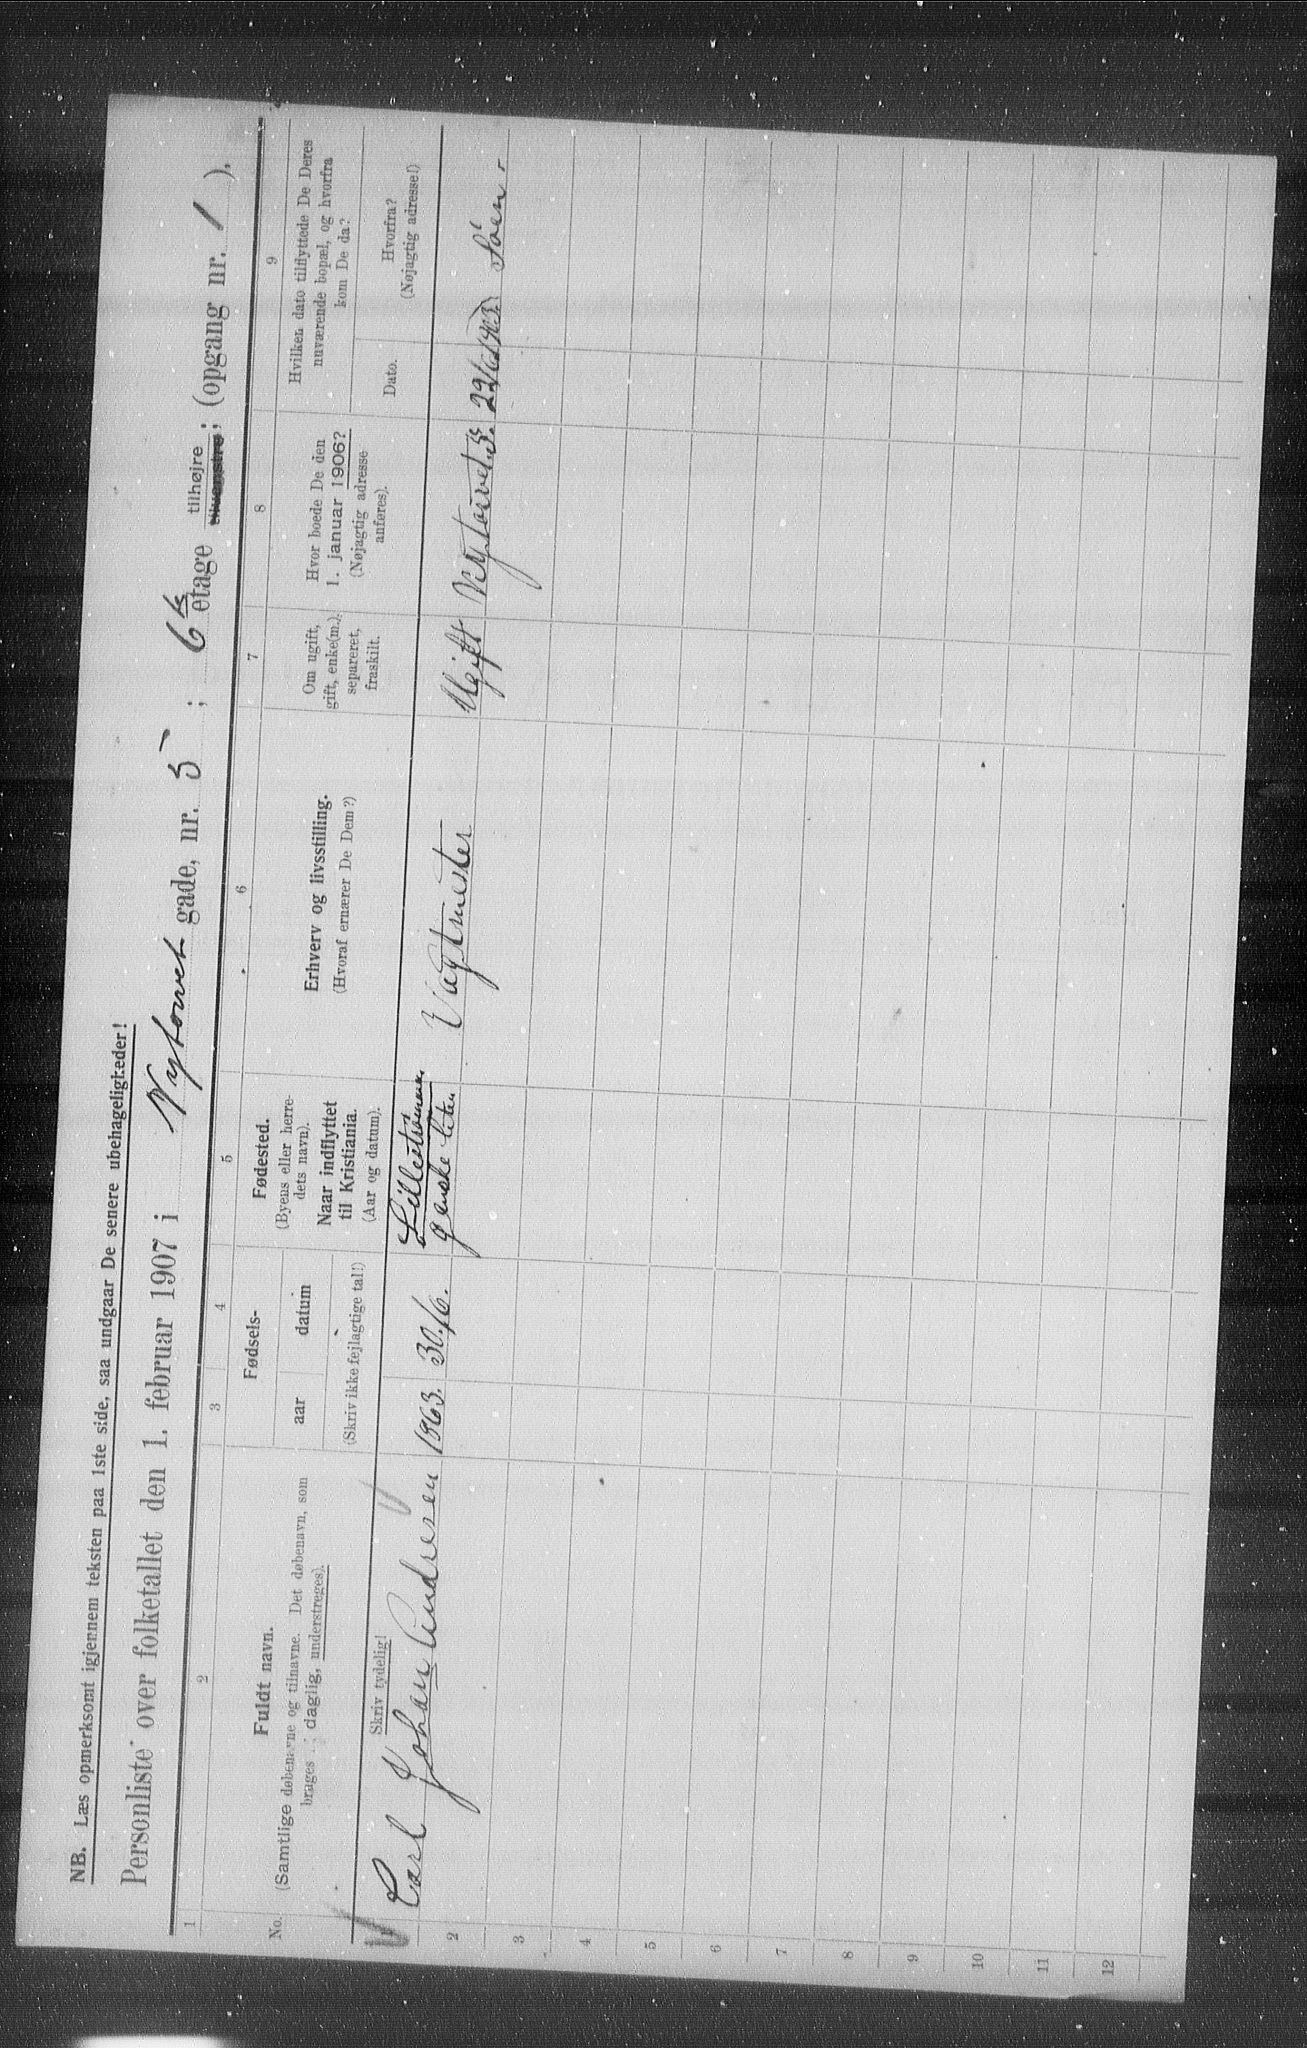 NB. Læs opmerksomt igjennem teksten paa 1ste side, saa undgaar De senere ubehageligheder!
Personliste over folketallet den 1. februar 1907 i Nytorvet gade, nr. 5 ; 6te etage tilhøjre tilvenstre; (opgang nr. 1 ).
1 2 3 4 5 6 7 8 9
No.
Fuldt navn.
(Samtlige døbenavne og tilnavne. Det døbenavn, som
bruges i daglig, understreges).
Skriv tydelig!
Fødsels-
aar datum
(Skriv ikke fejlagtige tal!)
Fødested.
(Byens eller herre-
dets navn).
Naar indflyttet
til Kristiania.
(Aar og datum).
Erhverv og livsstilling.
(Hvoraf ernærer De Dem?)
Om ugift,
gift, enke(m.),
separeret,
fraskilt.
Hvor boede De den
1. januar 1906?
(Nøjagtig adresse
anføres).
Hvilken dato tilflyttede De Deres
nuværende bopæl, og hvorfra
kom De da?
Dato.
Hvorfra?
(Nøjagtig adresse!)
1 Carl Johan Andresen 1863. 30/6. Lillestrømmen
ganske liten Vagtmester Ugift Nytorvet 5.
2
3
4
5
6
7
8
9
10
11
12